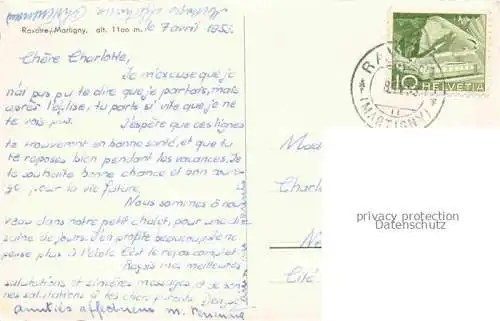 Ravoire/Martigny. alt. 1100 m. le 7 avril 1953
Chère Charlotte,
Je m'excuse que je
n'ai pas pu te dire que je partais, mais
après l'église, tu pars si vite que je ne
te vois plus.
J'espère que ces lignes
te trouveront en bonne santé, et que tu
te reposes bien pendant les vacances. Je
te souhaite bonne chance et bon coura-
ge pour la vie future.
Nous sommes à nou-
veau dans notre petit chalet, pour une di-
zaine de jours. J'en profite beaucoup, je ne
pense plus à l'école. C'est le repos complet.
Reçois mes meilleures
salutations et sincères messages, et je
mes salutations à tes chers parents. Denyse
amitiés affectueuses M.
HELVETIA
10
RAVOIRE
(MARTIGNY)
Mad
Charlo
Cité
privacy protection
Datenschutz